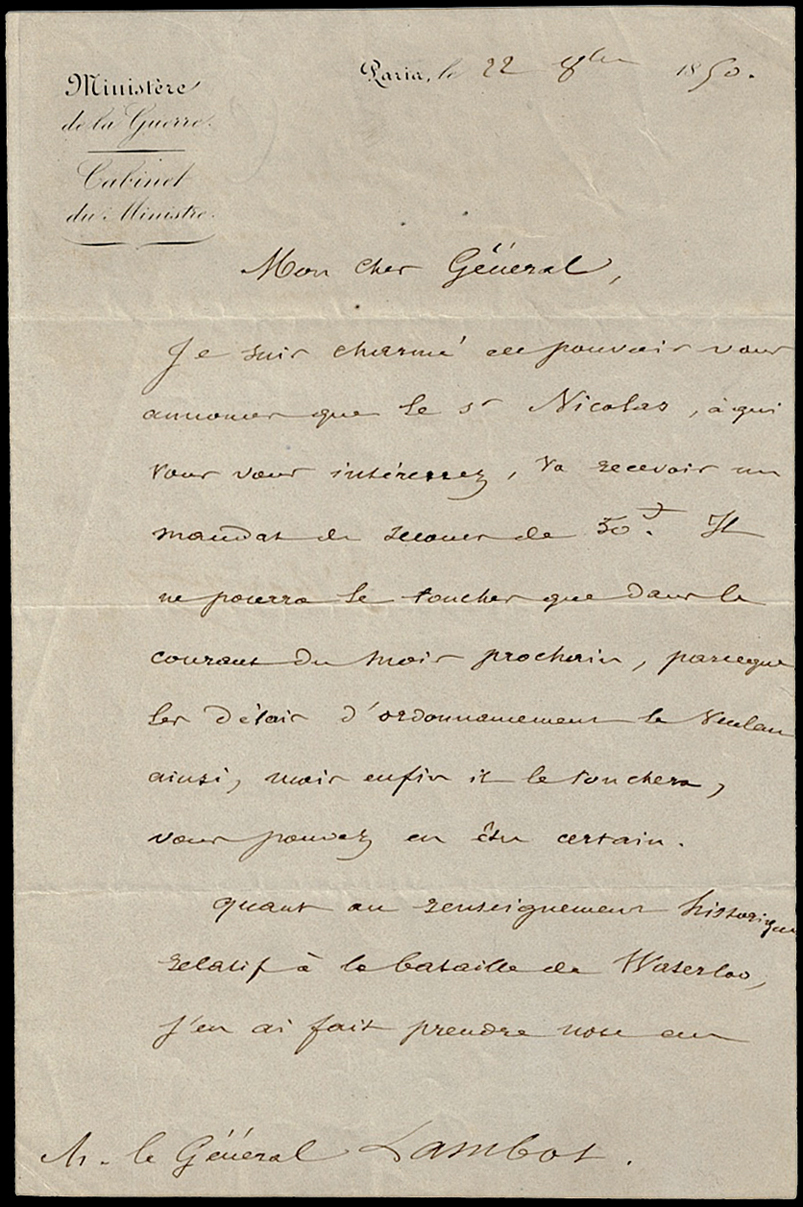 Ministère
de la Guerre.
Cabinet
du Ministre.
Paris, le 22 8bre 1850.
Mon cher Général,
Je suis charmé de pouvoir vous
annoncer que le Sr Nicolas, à qui
vous vous intéressez, va recevoir un
mandat de secours de 50f. Il
ne pourra le toucher que dans le
courant du mois prochain, parceque
les délais d'ordonnancement le veulent
ainsi, mais enfin il le touchera,
vous pouvez en être certain.
quant au renseignement historique
relatif à la bataille de Waterloo,
j'en ai fait prendre note au
M. le Général Lambot.